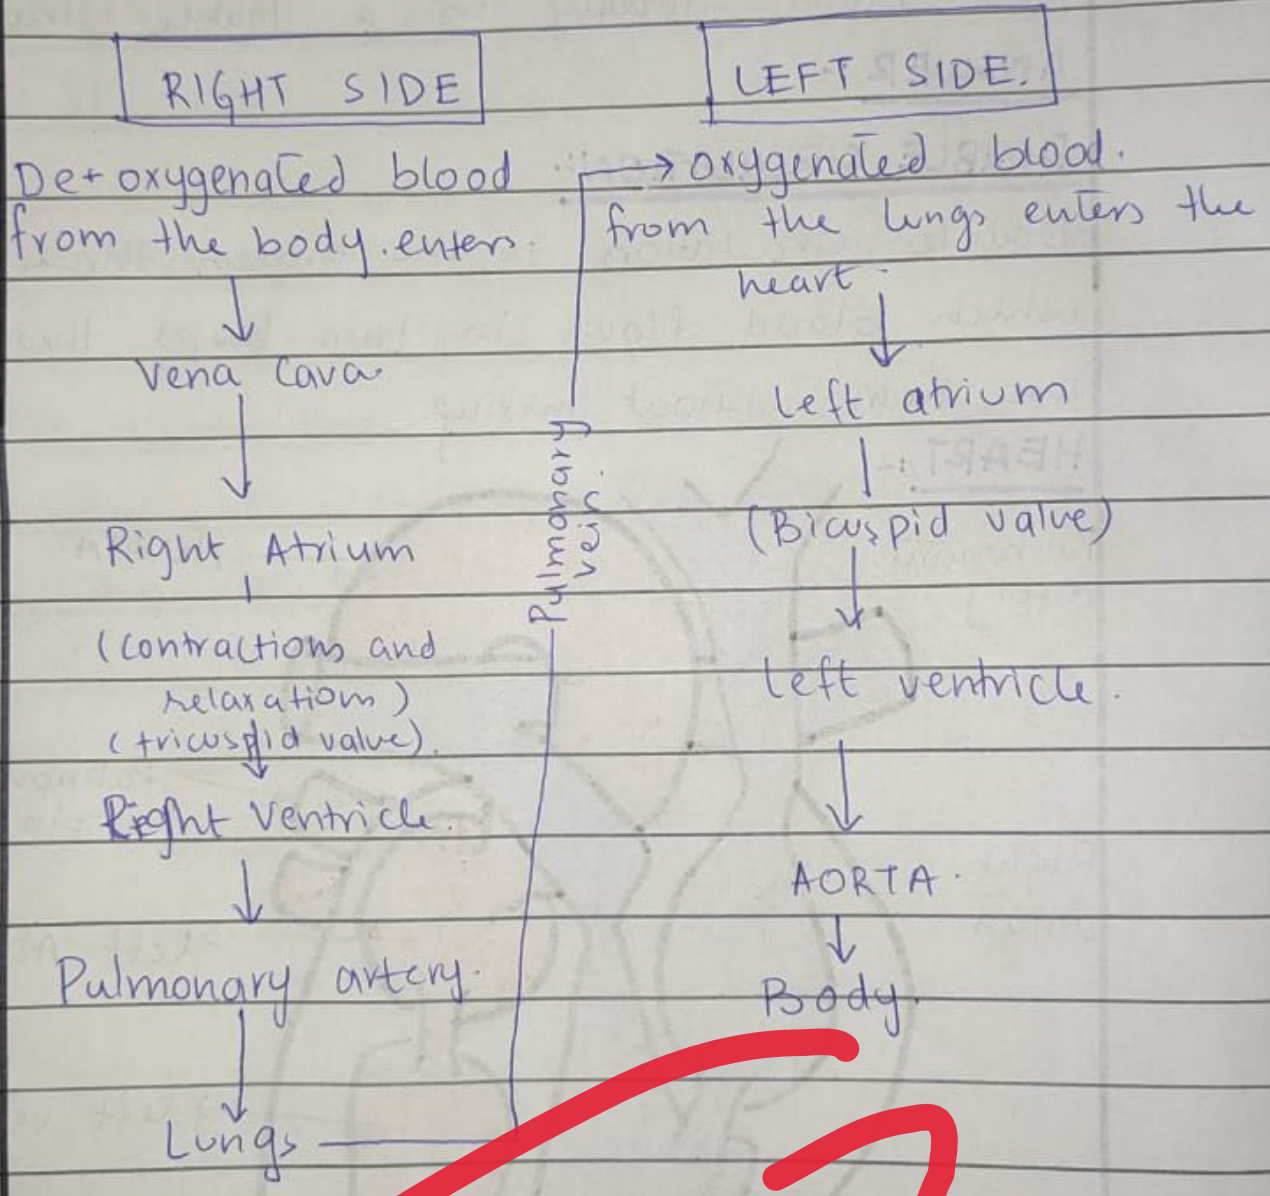 RIGHT SIDE
De-oxygenated blood
from the body enters.
Vena Cava
Right Atrium
(contractions and
relaxations)
(tricuspid valve).
Right Ventricle.
Pulmonary artery.
Lungs
Pulmonary
vein.
LEFT SIDE.
oxygenated blood.
from the lungs enters the
heart.
Left atrium
(Bicuspid valve)
Left ventricle.
AORTA.
Body.
HEART:-